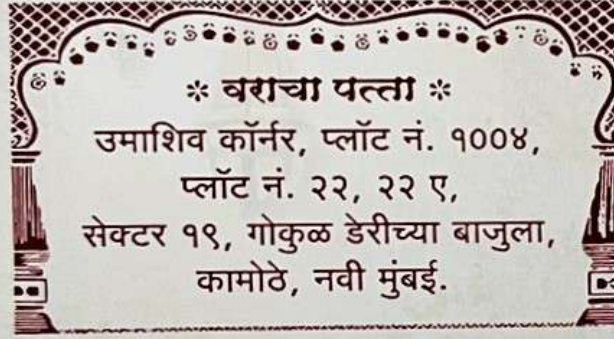 * वराचा पत्ता *
उमाशिव कॉर्नर, प्लॉट नं. १००४,
प्लॉट नं. २२, २२ ए,
सेक्टर १९, गोकुळ डेरीच्या बाजुला,
कामोठे, नवी मुंबई.